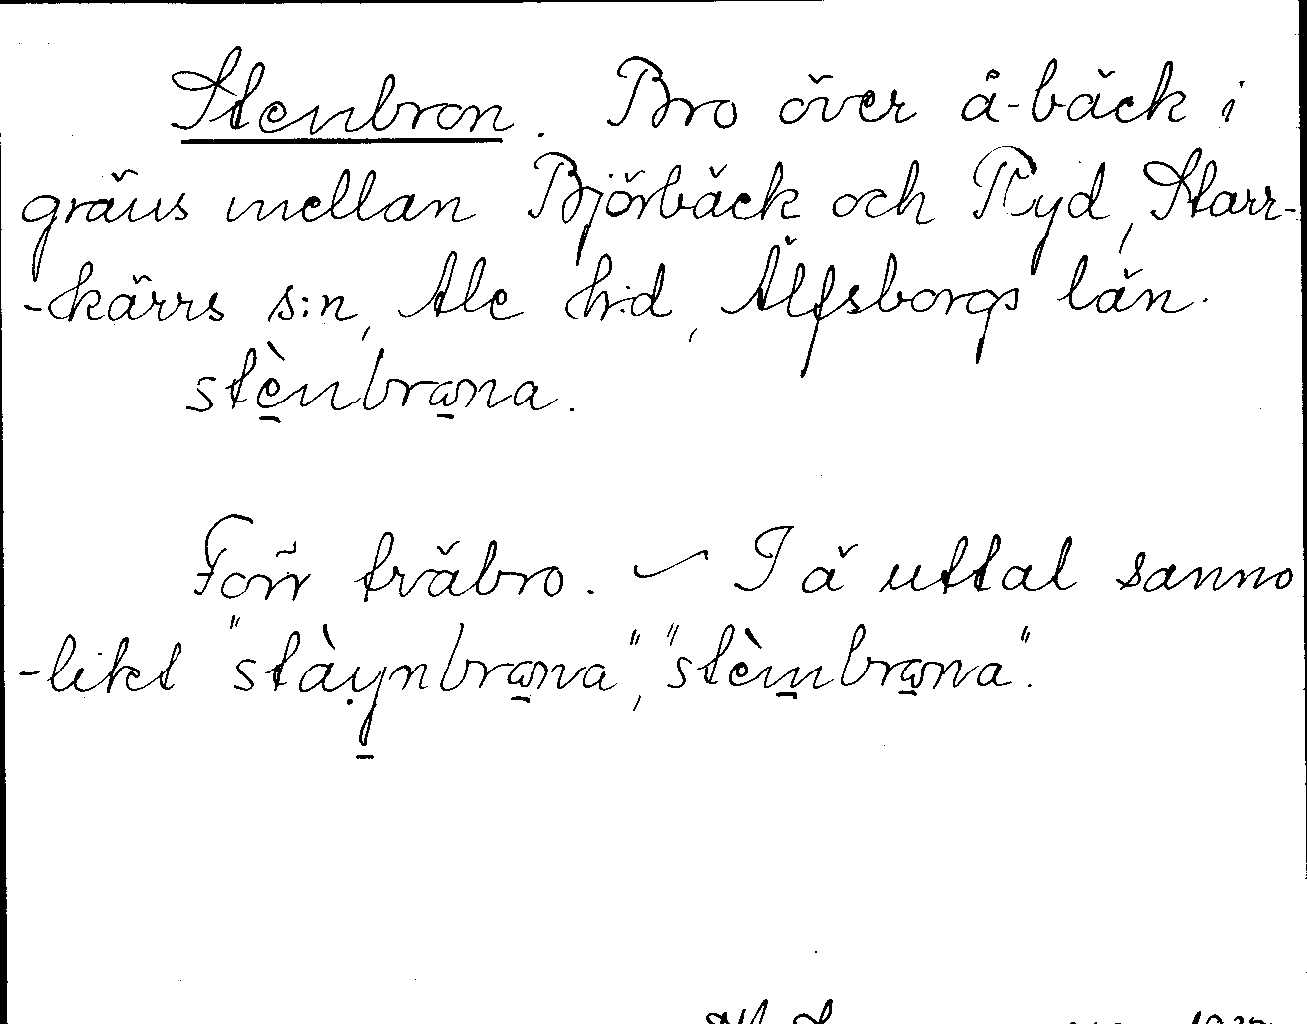 Stenbron. Bro över å-bäck i
gräns mellan Björbäck och Ryd, Starr-
-kärrs s:n, Ale h:d, Älfsborgs län.
stènbrωna.
Förr träbro. ~ I ä uttal sanno
-likt "stàynbrωna", "stèmbrωna".